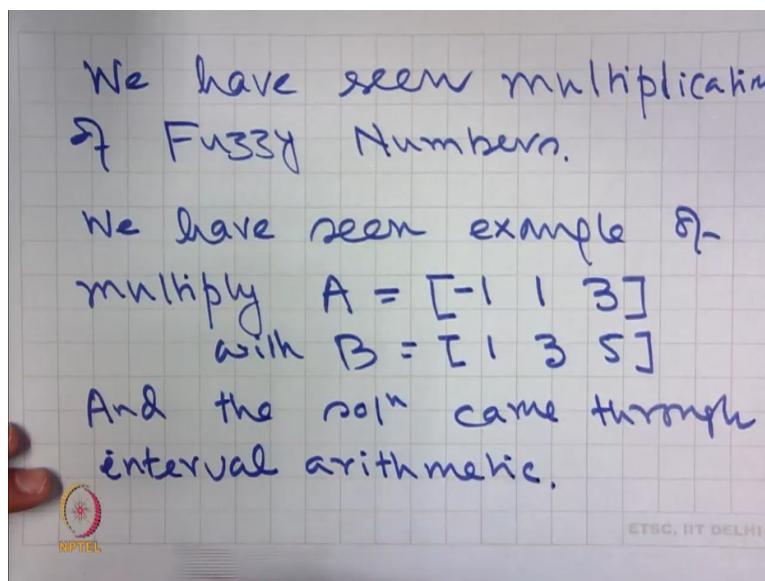 We have seen multiplication
of Fuzzy Numbers.
We have seen example of
multiply A = [-1 1 3]
with B = [1 3 5]
And the solⁿ came through
interval arithmetic.
NPTEL
ETSC, IIT DELHI